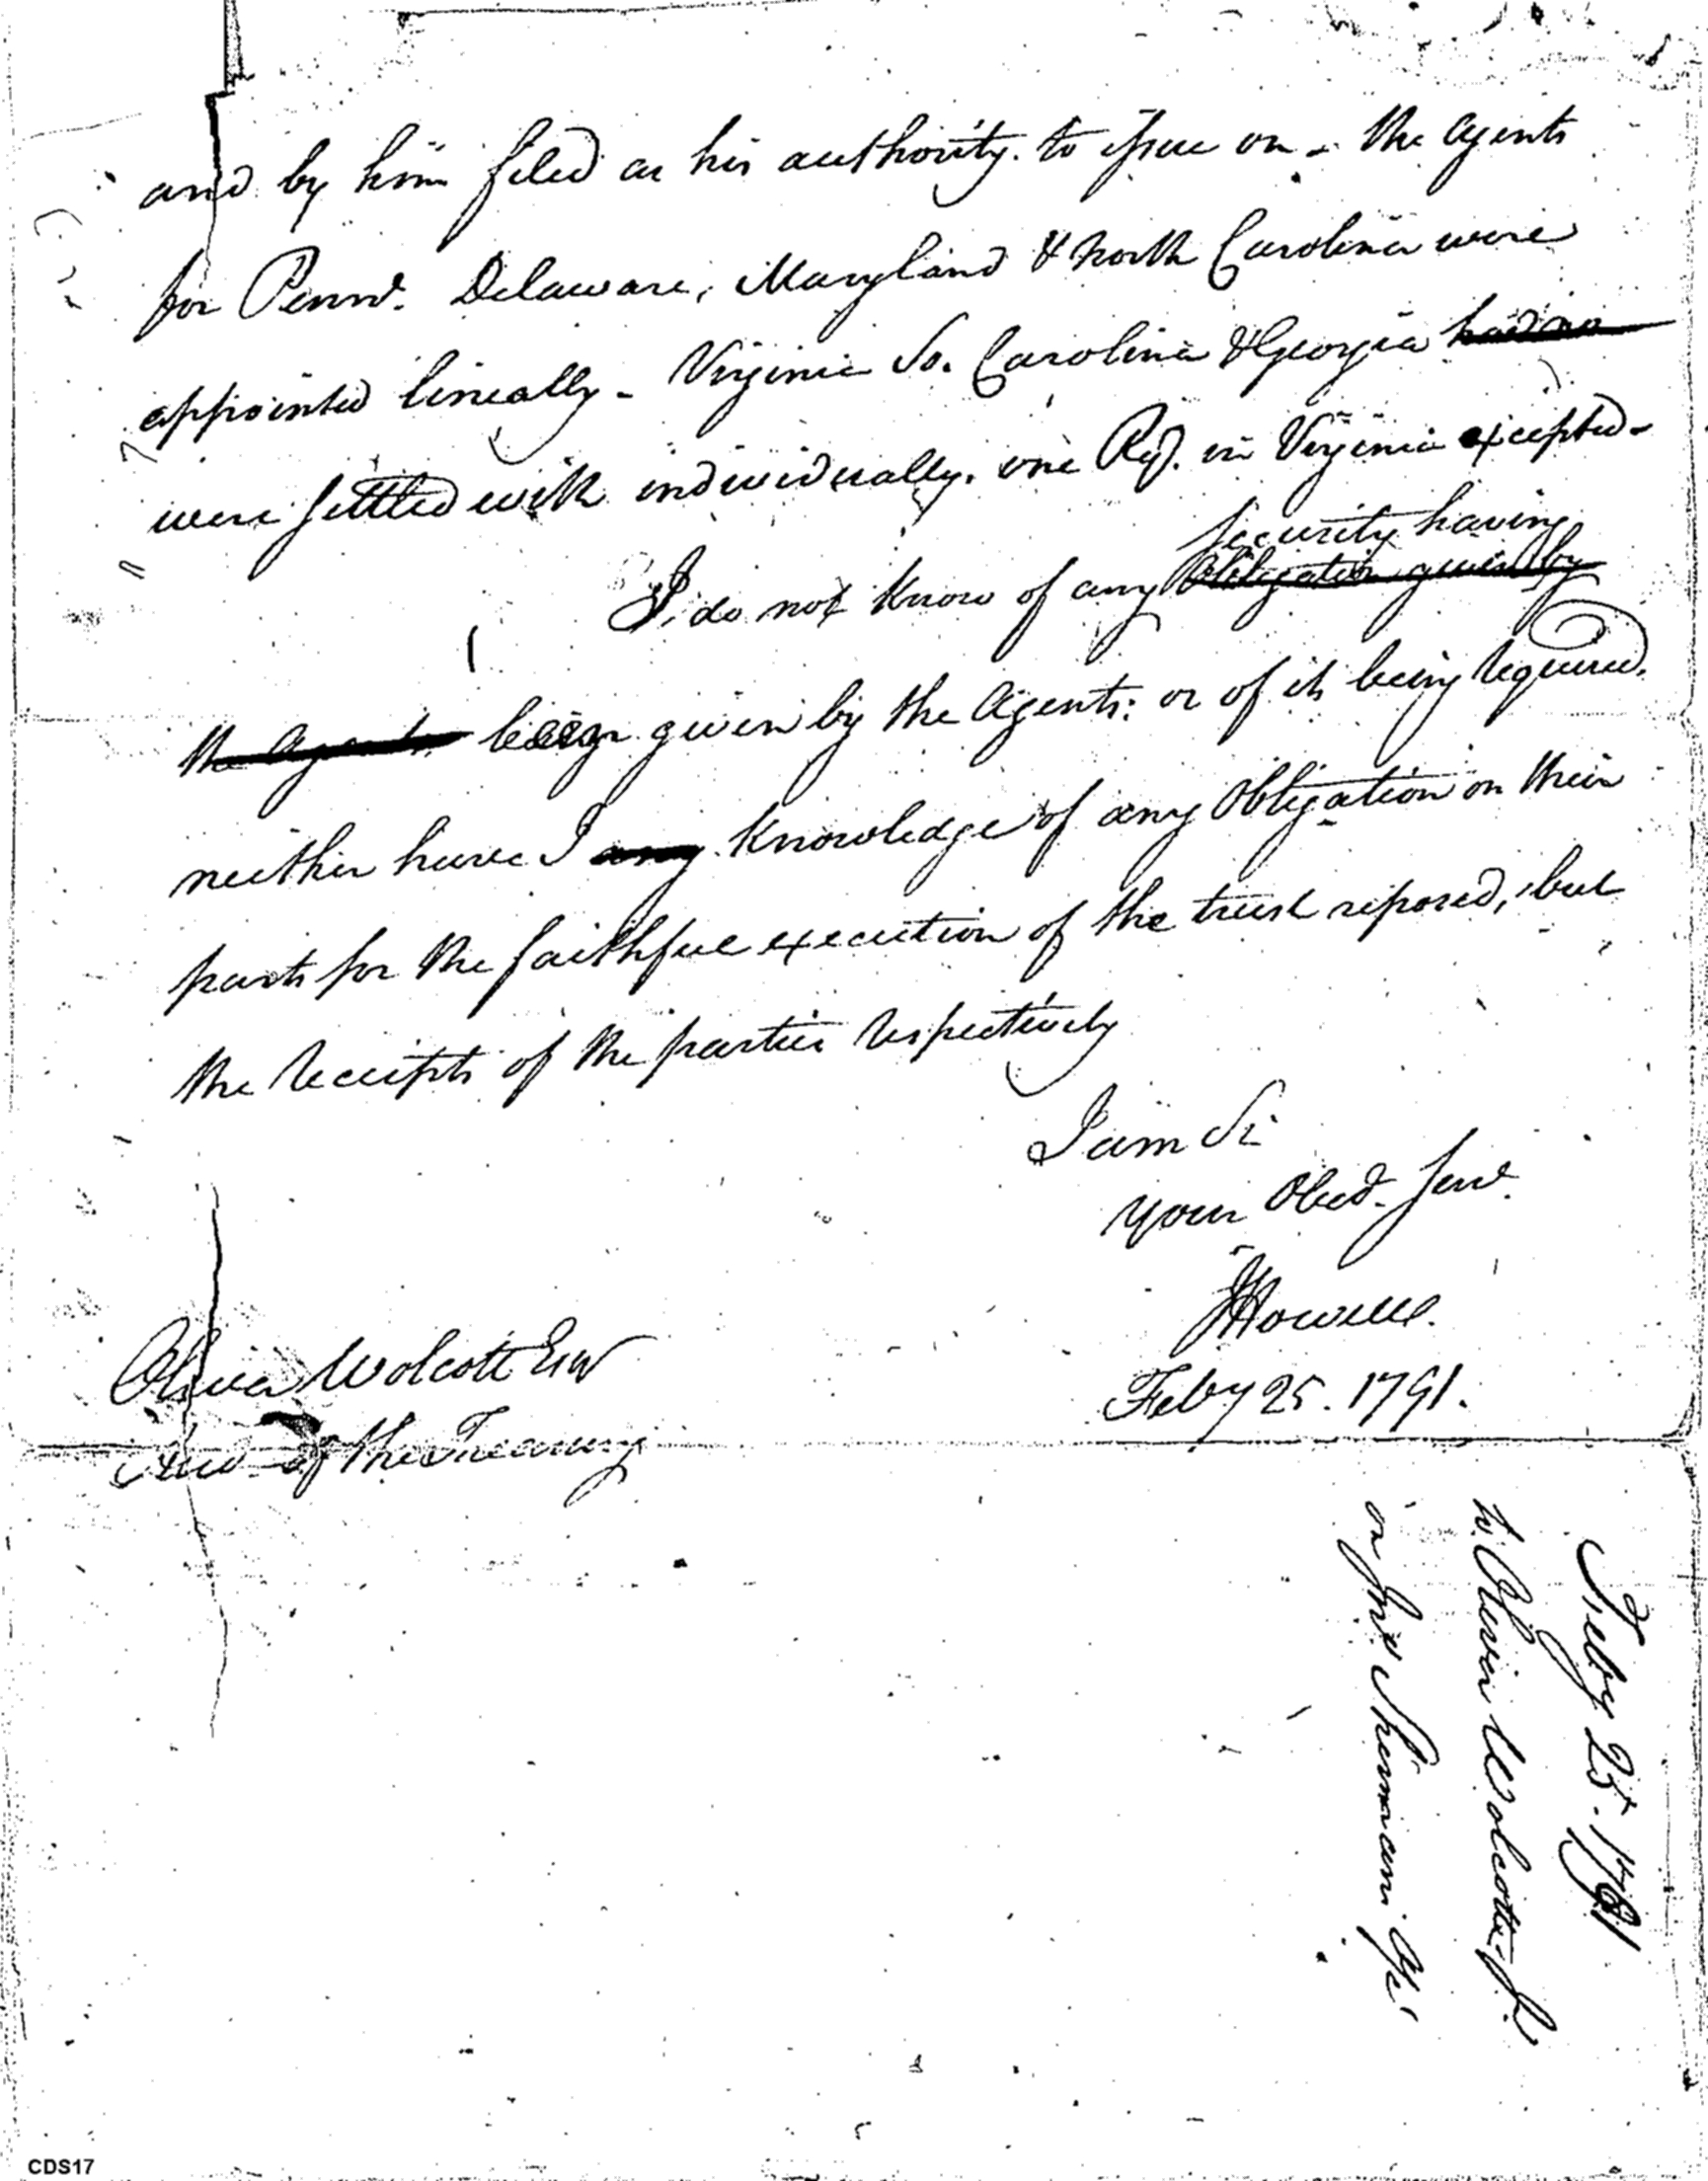 and by him filed as his authority. to issue on - the Agents
for Pennᵃ. Delaware, Maryland & North Carolina were
appointed lineally - Virginia So. Carolina & Georgia had no
were settled with individually. one Regᵗ. in Virginia excepted -
Security having
I do not know of any Obligation given by
the Agents been given by the Agents: or of its being required.
neither have I any Knowledge of any Obligation on their
parts for the faithful execution of the trust reposed, but
the receipts of the parties respectively
I am Sir
your Obed. Serv.
JHowell.
Oliver Wolcott Esqr
Feby 25. 1791.
of the Treasury
Feby 25. 1791
to. Oliver Wolcott
on Sherman
CDS17